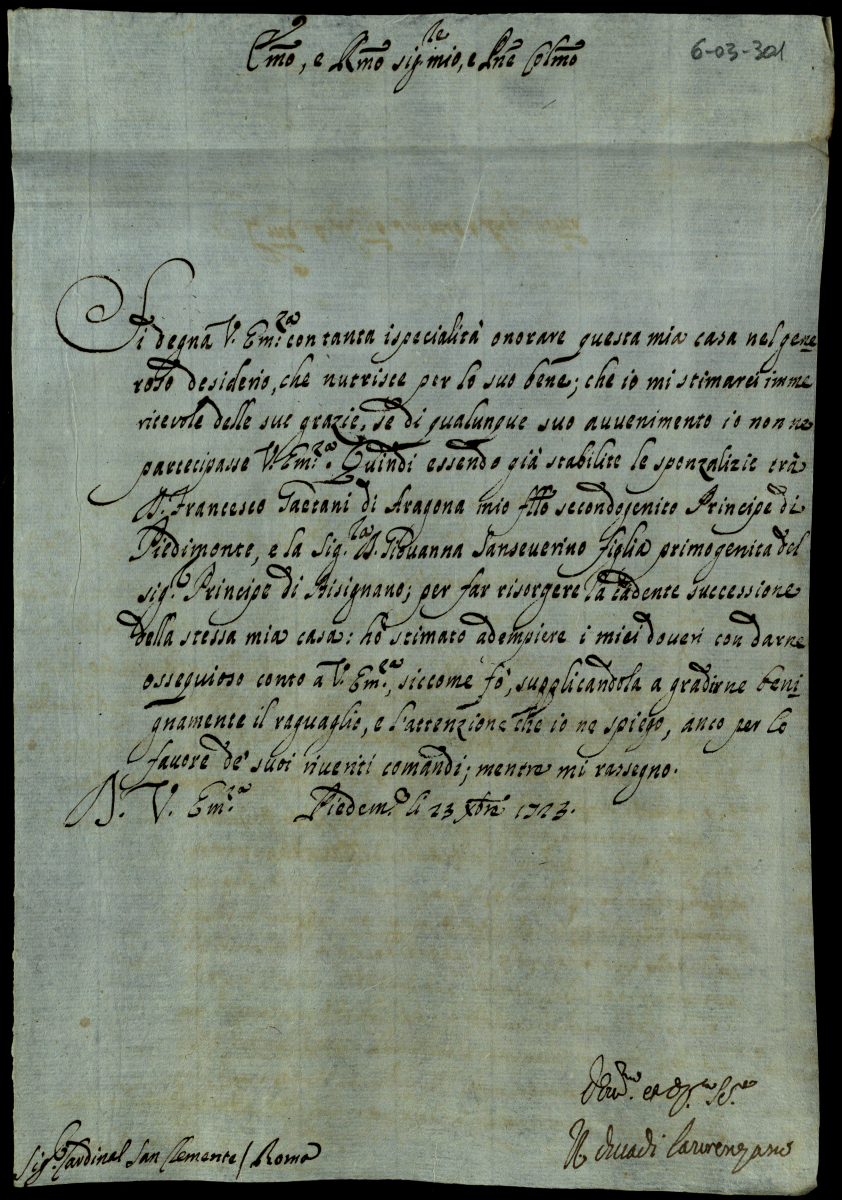 6-03-301
Em̃o, e Rm̃o sig.re mio, e Pñe Colm̃o
Si degna V. Em.za con tanta ispecialità onorare questa mia casa nel gene
roso desiderio, che nutrisce per lo suo bene; che io mi stimarei imme
ritevole delle sue grazie, se di qualunque suo avvenimento io non ne
partecipasse V. Em.za. Quindi essendo già stabilite le sponzalizie trà
D. Francesco Gaetani di Aragona mio fllo secondogenito Principe di
Piedimonte, e la Sig.ra D. Giovanna Sanseverino figlia primogenita del
sig.r Principe di Bisignano; per far risorgere la cadente successione
della stessa mia casa: hò stimato adempiere i miei doveri con darne
ossequioso conto a V. Em.za, siccome fò, supplicandola a gradirne beni
gnamente il raguaglio, e l'attenzione che io ne spiego, anco per lo
favore de' suoi riveriti comandi; mentre mi rassegno.
D. V. Em.za Piedem.e li 23 Xbre 1723.
Dev.mo et
Il Duca di Laurenzano
Sig.r Cardinal San Clemente / Roma